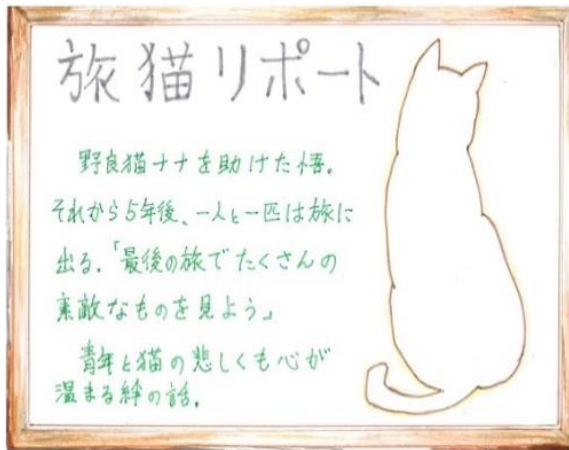 旅猫リポート
野良猫ナナを助けた悟。
それから5年後、一人と一匹は旅に
出る.「最後の旅でたくさんの
素敵なものを見よう」
青年と猫の悲しくも心が
温まる絆の話.